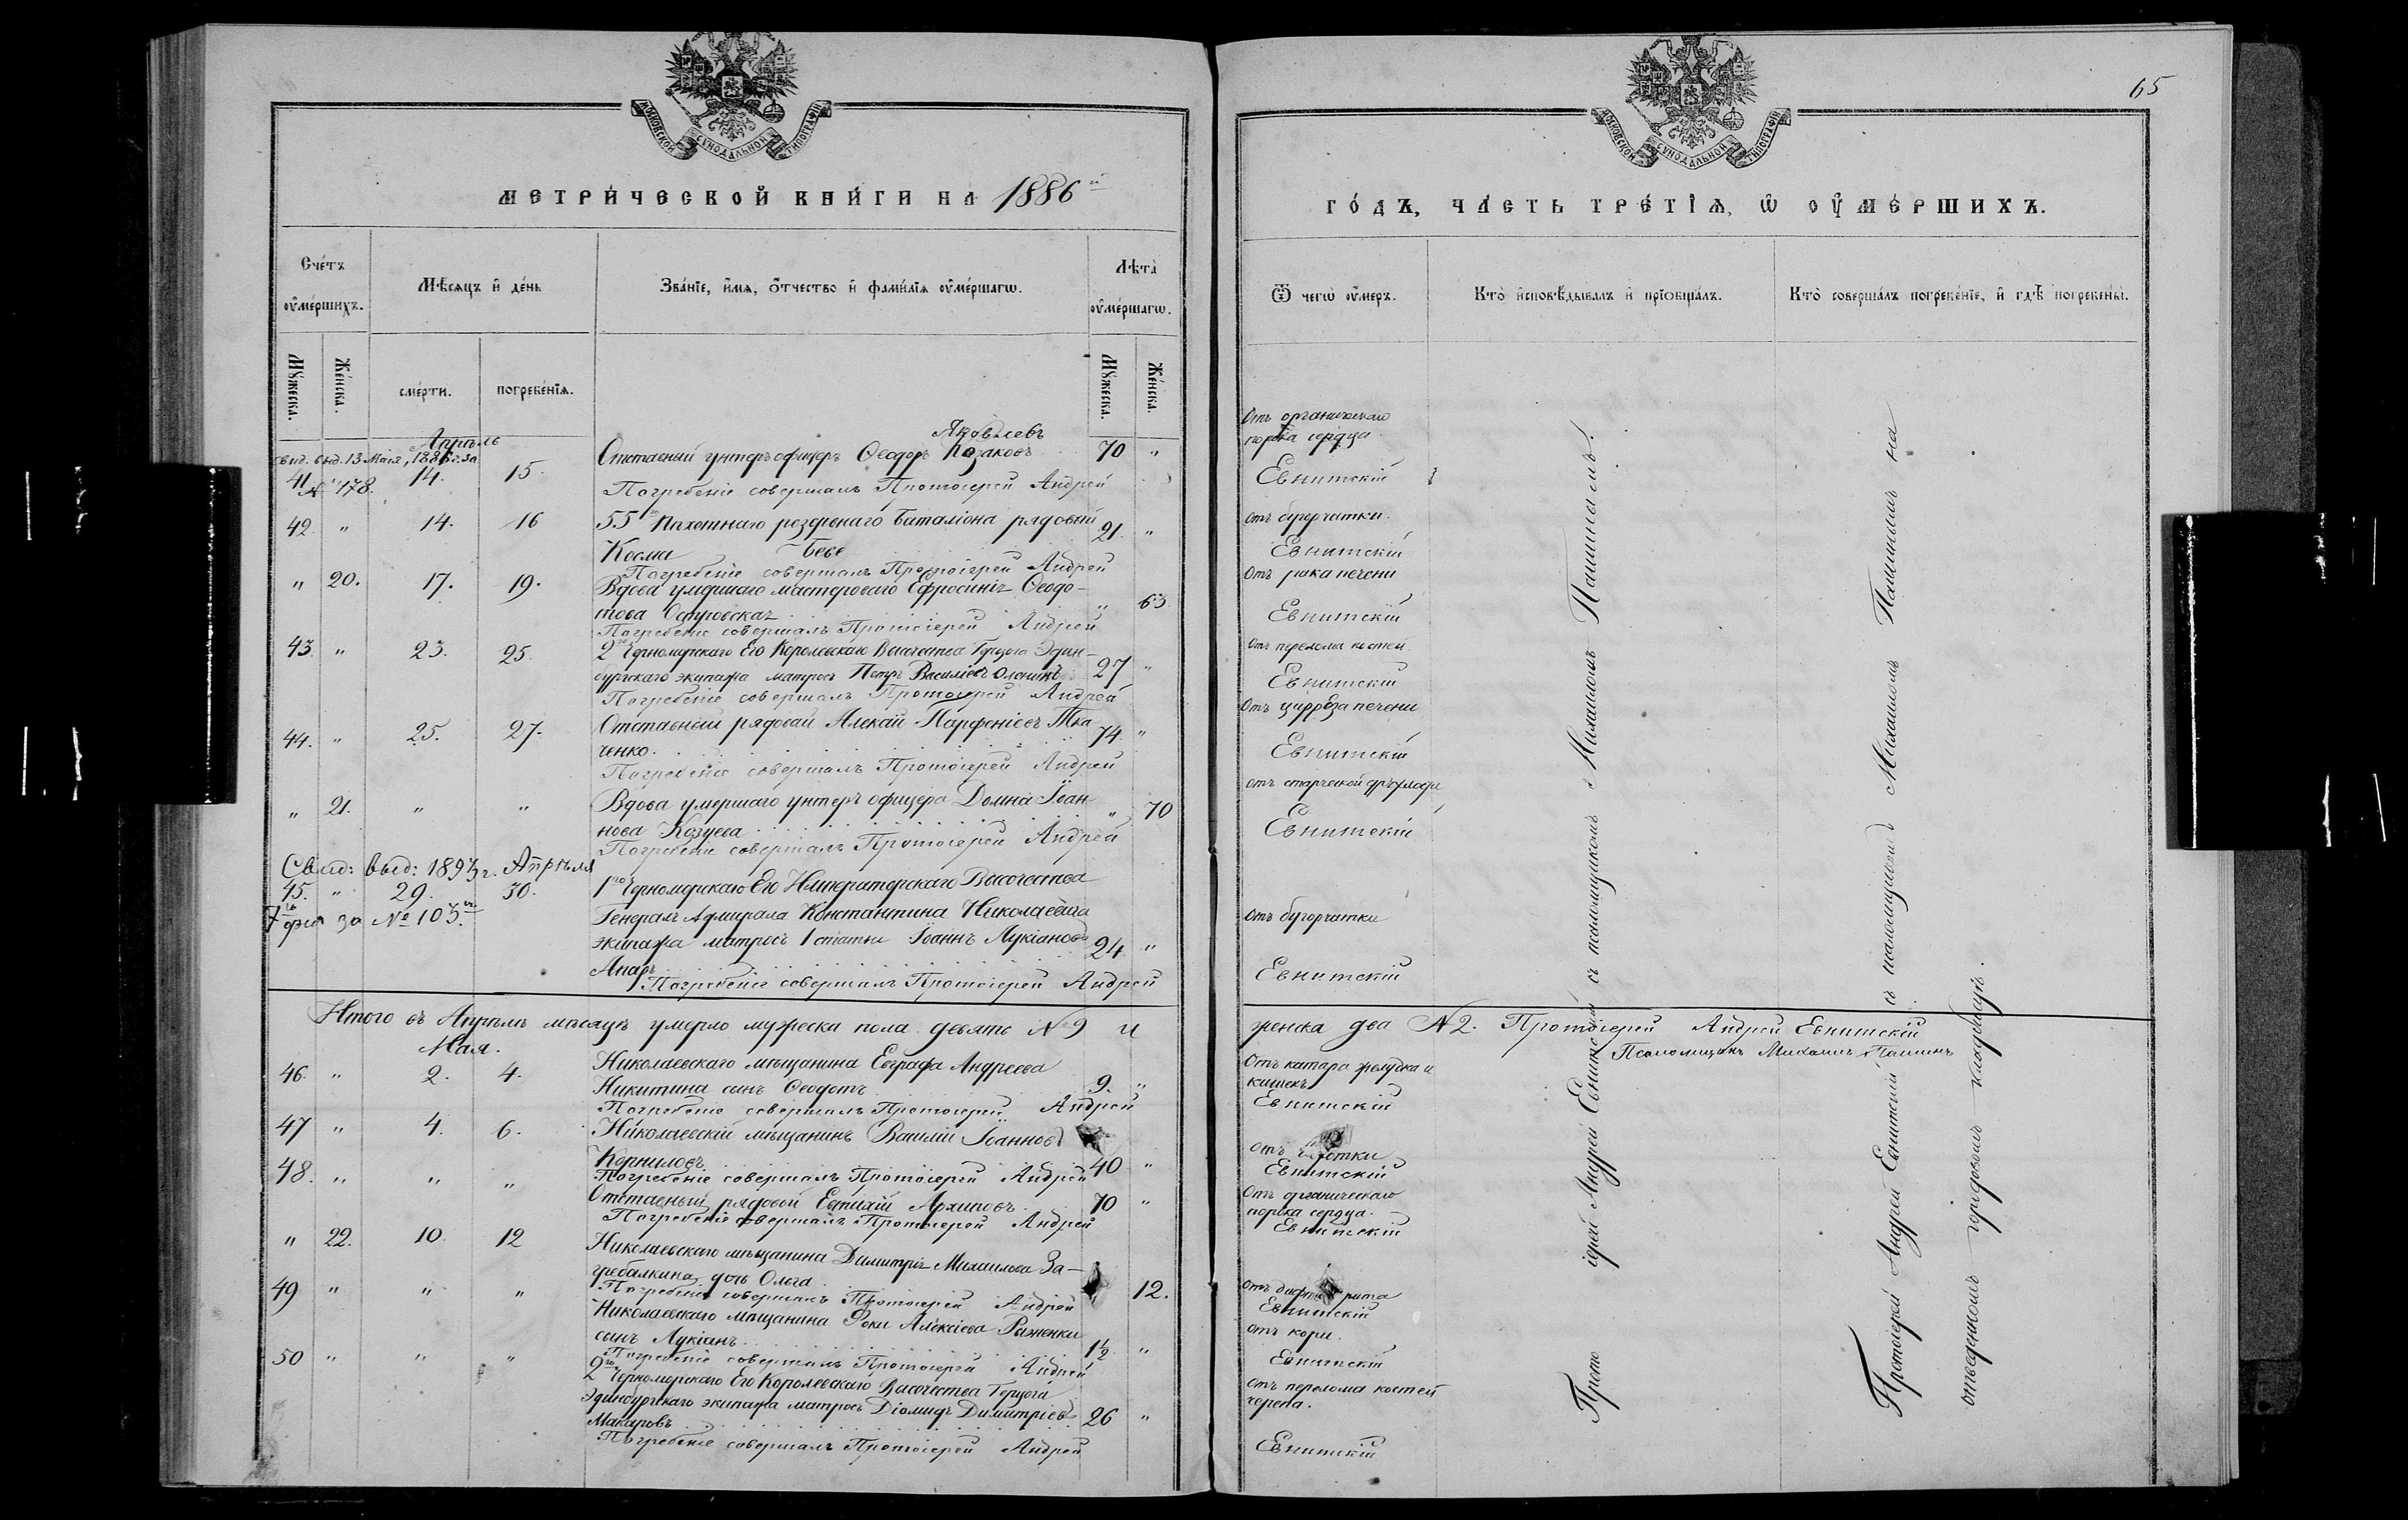 65
МОСКОВСКОЙ СѴНОДАЛЬНОЙ ТИПОГРАФІИ
МОСКОВСКОЙ СѴНОДАЛЬНОЙ ТИПОГРАФІИ
МЕТРИ́ЧЕСКОЙ КНИ́ГИ НА 1886й
ГО́ДЪ, ЧА́СТЬ ТРЕ́ТІѦ, Ѡ ОУМЕ́РШИХЪ.
Сче́тъ оумершихъ.
Мѣсяцъ и день
Зва́ніе, имя, отчество и фами́лія оуме́ршагѡ.
Лѣта оумершагѡ.
Ѿ чегѡ оумеръ.
Кто исповѣдывалъ и пріобщалъ.
Кто совершалъ погребеніе, и гдѣ погребены.
Мужеска.
Женска.
смерти.
погребенія.
Мужеска.
Женска.
Апрѣль
Яковлевъ
свид. выд. 13 Мая, 1886 г. за
№ 178.
41 14. 15. Отставный унтеръ офицеръ Ѳеодоръ Козаковъ 70 "
Отъ органическаго
порока сердца.
Погребеніе совершалъ Протоіерей Андрей Евнитскій
42. " 14. 16 55го Пѣхотнаго резервнаго баталіона рядовый 21. " отъ бугорчатки.
Косма Беве
Погребеніе совершалъ Протоіерей Андрей Евнитскій
" 20. 17. 19. Вдова умершаго мастероваго Ефросинія Ѳеодо- Отъ рака печени
това Островская " 63
Погребеніе совершалъ Протоіерей Андрей Евнитскій
43. " 23. 25. 2го Черноморскаго Его Королевскаго Высочества Герцога Эдин- Отъ перелома костей.
бургскаго экипажа матросъ Петръ Василіевъ 27 "
Погребеніе совершалъ Протоіерей Андрей Евнитскій
44. " 25. 27. Отставный рядовый Алексій Парфеніевъ Тка Отъ цирроза печени
ченко. 74. "
Погребеніе совершалъ Протоіерей Андрей Евнитскій
" 21. " " Вдова умершаго унтеръ офицера Домна Іоан отъ старческой дряхлости
нова Козуева " 70
Погребеніе совершалъ Протоіерей Андрей Евнитскій
Свид: выд: 1893 г. Апрѣля
45. " 29. 30. 1го Черноморскаго Его Императорскаго Высочества
7 дня за № 103.
Генералъ Адмирала Константина Николаевича отъ бугорчатки
экипажа матросъ 1 статьи Іоаннъ Лукіановъ 24 "
Апаръ
Погребеніе совершалъ Протоіерей Андрей Евнитскій
Итого въ Апрѣлѣ мѣсяцѣ умерло мужеска пола девять № 9 и женска два № 2. Протоіерей Андрей Евнитскій
Псаломщикъ Михаилъ Пашинъ
Мая.
46. " 2. 4. Николаевскаго мѣщанина Евграфа Андреева Отъ катара желудка и
Никитина сынъ Ѳеодотъ 9. " кишекъ
Погребеніе совершалъ Протоіерей Андрей Евнитскій
47 " 4. 6. Николаевскій мѣщанинъ Василій Іоанновъ
Корниловъ. 40 "
Погребеніе совершалъ Протоіерей Андрей Евнитскій
48. " " " Отставный рядовый Евтихій Архиповъ 70 " Отъ органическаго
порока сердца.
Погребеніе совершалъ Протоіерей Андрей Евнитскій
" 22. 10 12 Николаевскаго мѣщанина Димитрія Михаилова За-
гребалкина дочь Ольга 12. отъ дифтерита
Погребеніе совершалъ Протоіерей Андрей Евнитскій
49 " " " Николаевскаго мѣщанина Фоки Алексіева Раженки отъ кори.
сынъ Лукіанъ 1½ "
Погребеніе совершалъ Протоіерей Андрей Евнитскій
50 " " " 2го Черноморскаго Его Королевскаго Высочества Герцога отъ перелома костей
Эдинбургскаго экипажа матросъ Діомидъ Димитріевъ 26 " черепа.
Макаровъ
Погребеніе совершалъ Протоіерей Андрей Евнитскій
Протоіерей Андрей Евнитскій съ псаломщикомъ Михаиломъ Пашинымъ.
Протоіерей Андрей Евнитскій съ псаломщикомъ Михаиломъ Пашинымъ на
отведенномъ городовомъ кладбищѣ.